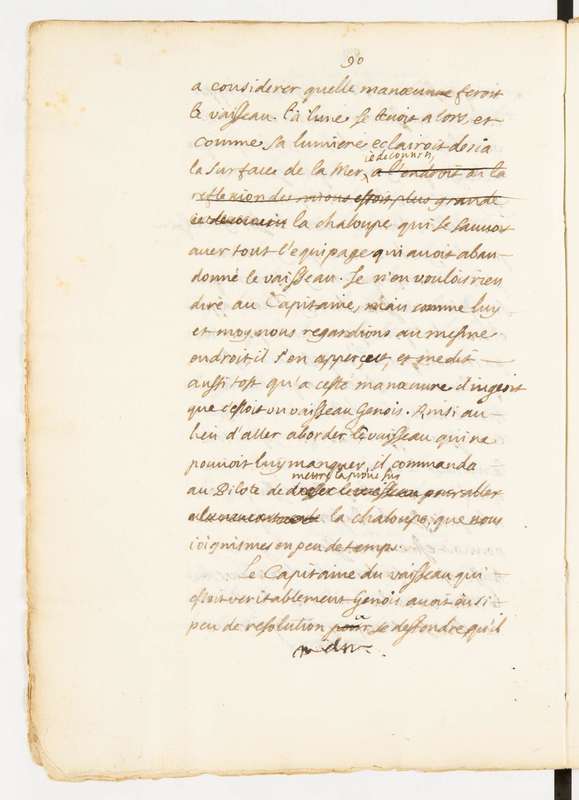 90
a considerer quelle manœuure feroit
le vaisseau. La lune se leuoit alors, et
comme sa lumiere eclairoit desia
ie decouuris
la surface de la Mer, a l'endroit ou la
reflexion des raions estoit plus grande
ie decouuris la chaloupe qui se sauuoit
auec tout l'equipage qui auoit aban-
donné le vaisseau. Je n'en voulois rien
dire au Capitaine, mais comme luy
et moy nous regardions au mesme
endroit, il s'en apperçeut, et me dit
aussi tost qu'a ceste manœuure il iugeoit
que c'estoit un vaisseau Genois. Ainsi au-
lieu d'aller aborder le vaisseau qui ne
pouuoit luy manquer, il commanda
mettre la proüe sur
au Pilote de le vaisseau pour aller
la chaloupe, que nous
ioignismes en peu de temps.
Le Capitaine du vaisseau qui
estoit veritablement Genois auoit eu si
peu de resolution pour se deffendre, qu'il